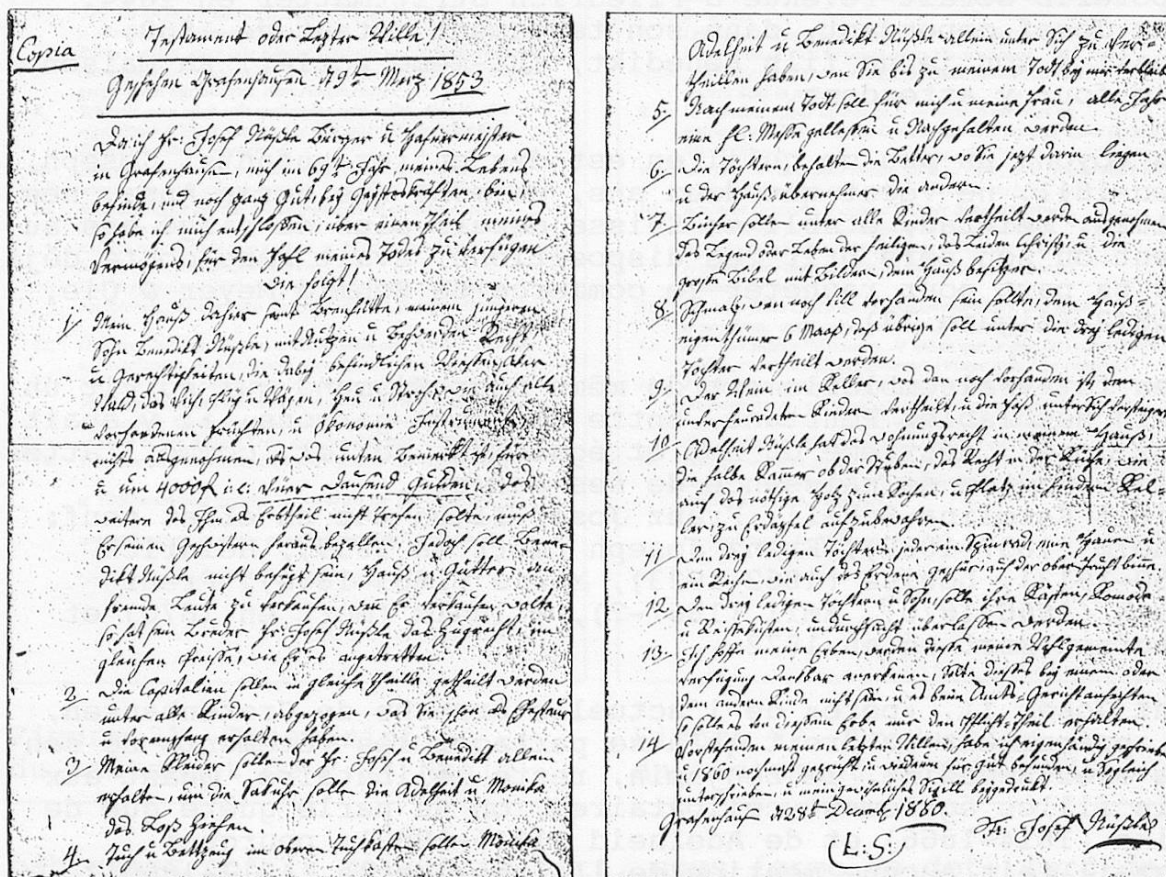 Copia
Testament oder Letzter Wille!
Geschehen Grafenhausen d 9t Merz 1853
Da ich Fr: Josef Nüßle Bürger u Hafnermeister
in Grafenhausen, mich im 69t Jahr meines Lebens
befinde, und noch ganz gut bey Geisteskräften bin,
so habe ich mich entschlossen, über einen Theil meines
Vermögens, für den Fahl meines Todes zu verfügen
wie folgt!
1. Mein Hauß dahier samt Brenhütte, meinem jüngeren
Sohn Benedikt Nüßle, mit Nutzen u Beschwerden Recht
u Gerechtigkeiten, die dabey befindlichen
Wald, das Vieh Pflug u Wägen, Heu u Stroh, wie auch alle
vorhandenen Früchten, u Ökonomie Instrumente,
nichts ausgenohmen, als was unten bemerkt ist, für
u um 4000f i.e: Vier Dausend Gulden, das
weitere das Ihm als Erbtheil nicht treffen solte, muß
Er seinen Geschwistern heraus bezallen. Jedoch soll Bene-
dikt Nüßle nicht befugt sein, Hauß u Gütter an
fremde Leute zu verkaufen, wenn Er verkaufen wolte,
so hat sein Bruder Fr: Josef Nüßle das Zugrecht, im
gleichen Preisse, wie Er es angetretten.
2. Die Capitalien sollen in gleiche Theille getheilt werden
unter alle Kinder, abgezogen, was Sie schon als Ehesteuer
u erhalten haben.
3. Meine Kleider sollen der Fr: Josef u Benedikt allein
erhalten, um die Sakuhr sollen die Adelheit u Monika
das Loß ziehen.
4. Tuch u Bettzeug im oberen Tuchkasten sollen Monika
Adelheit u Benedikt Nüßle allein unter Sich zu ver-
theillen haben, wen Sie bis zu meinem Todt bey mir verbleiben
5. Nach meinem Todt soll für mich u meine Frau, alle Jahr
eine hl: Messe gellessen u Nachgehalten werden.
6. Die Töchtern, behalten die Better, wo Sie jezt darin liegen
u der Haußübernehmer die andern.
7. Bücher sollen unter alle Kinder vertheilt werden ausgenohmen
das Legend oder Leben der Heiligen, das Leiden Christy, u die
große Bibel mit Bilder, dem Hauß besitzer.
8. Schmalz, wen noch vill vorhanden sein sollte, dem Hauß-
eigenthümer 6 Maaß, daß übrige soll unter die drey ledigen
Töchter vertheilt werden.
9. Der Wein im Keller, was dan noch vorhanden ist, dem
unterheuradeten Kinder vertheilt, u die Faß unter Sich versteigert
10. Adelheit Nüßle hat das Wohnungsrecht in meinem Hauß,
die halbe Kammer ob der Stuben, das Recht in der Küche, wie
auch das nöthige Holz zum Kochen, u Platz im hindern Kel-
ler, zu Erdäpfel aufzubewahren.
11. Den drey ledigen Töchtern jeder ein Spinrad, eine Hauen u
ein Rechen, wie auch das Erdene geschir, auf der oberen binne.
12. Den drey ledigen Töchtern u Sohn, solle ihre Kästen, Komode
u Reissekisten, undurchsucht überlassen werden.
13. Ich hoffe meine Erben, werden diese meine wohlgemeinte
Verfügung dankbar anerkenen, solte dieses bey einem oder
dem andern Kinde nicht sein, u es beim Amts-Gericht anfechten
so solle es von diesem Erbe nur den Pflicht-Theil erhalten.
14. Vorstehenden meinen letzten Willen, habe ich eigenhändig geschrieben
u 1860 nochmals gepricht u wiederum für Gut befunden, u Sogleich
unterschrieben, u mein gewöhnliches Sigill beygedrukt.
Grafenhausen d 28t Decemb 1860.
(L. S.) Fr: Josef Nüßle